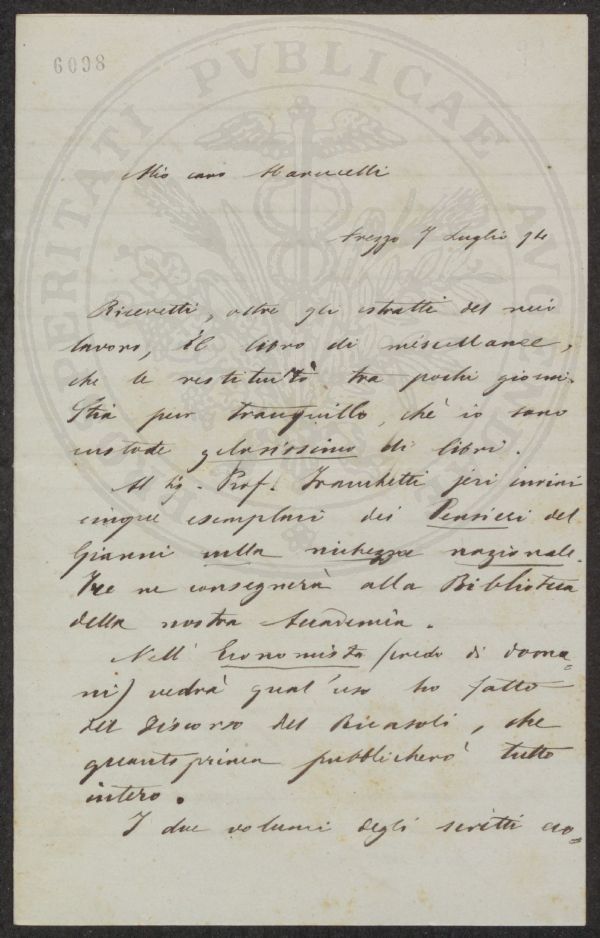 6098
Mio caro Marucelli
Arezzo 7 Luglio 94
Ricevetti, oltre gli estratti del suo
lavoro, il libro di miscellanee,
che le restituirò tra pochi giorni.
Stia pur tranquillo, chè io sono
custode gelosissimo di libri.
Al Sig. Prof. Franchetti jeri inviai
cinque esemplari dei Pensieri del
Gianni sulla richezza nazionale.
Tre ne consegnerà alla Biblioteca
della nostra Accademia.
Nell' Economista (credo di doma=
ni) vedrà qual'uso ho fatto
del Discorso del Ricasoli, che
quanto prima pubblicherò tutto
intero.
I due volumi degli scritti eco=
PROSPERITATI PVBLICAE AVGENDAE